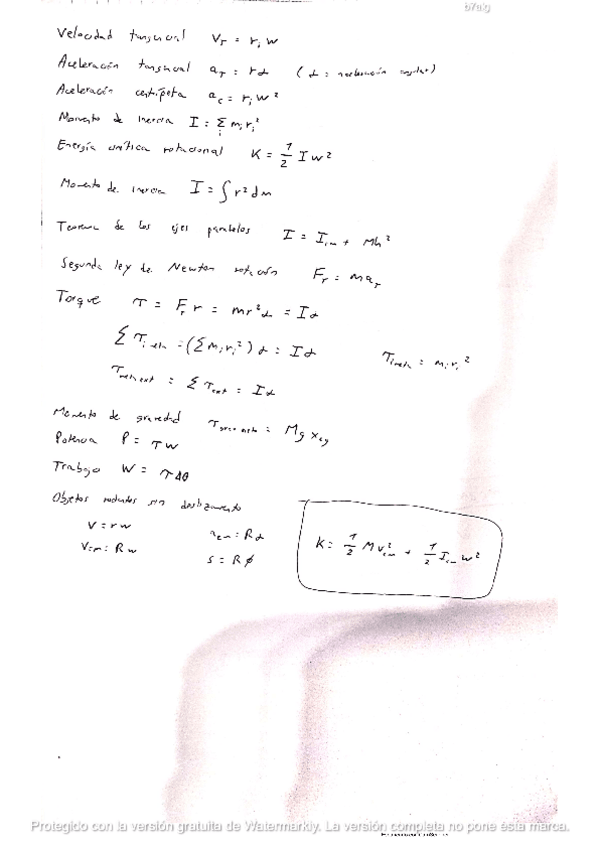 b7dig
Velocidad tangencial V_T = r_i w
Aceleración tangencial a_T = r α (α = aceleración angular)
Aceleración centrípeta a_c = r_i w²
Momento de inercia I = Σ_i m_i r_i²
Energía cinética rotacional K = 1/2 I w²
Momento de inercia I = ∫ r² dm
Teorema de los ejes paralelos I = I_cm + Mh²
Segunda ley de Newton rotación F_T = m a_T
Torque τ = F_T r = mr²α = Iα
Σ τ_i neto = (Σ m_i r_i²) α = Iα τ_i neto = m_i r_i²
τ_neto ext = Σ τ_ext = Iα
Momento de gravedad τ = Mg x_cg
Potencia P = τ w
Trabajo W = τ Δθ
Objetos rodantes sin deslizamiento
V = r w a_cm = R α
V_cm = R w s = R φ
K = 1/2 M v_cm² + 1/2 I_cm w²
Protegido con la versión gratuita de Watermarkly. La versión completa no pone esta marca.